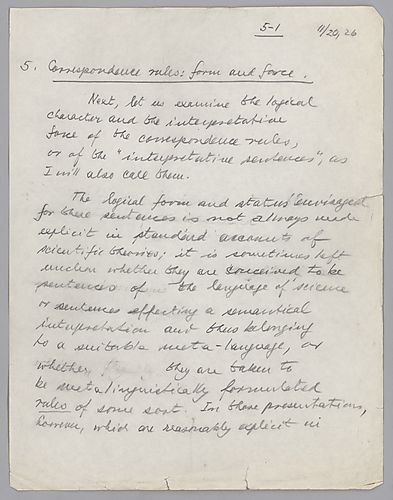 5-1
11/20, 26
5. Correspondence rules: form and force.
Next, let us examine the logical
character and the interpretative
force of the correspondence rules,
or of the "interpretative sentences", as
I will also call them.
The logical form and status envisaged
for these sentences is not always made
explicit in standard accounts of
scientific theories; it is sometimes left
unclear whether they are conceived to be
sentences of the language of science
or sentences effecting a semantical
interpretation and thus belonging
to a suitable meta-language, or
whether they are taken to
be metalinguistically formulated
rules of some sort. In those presentations,
however, which are reasonably explicit in